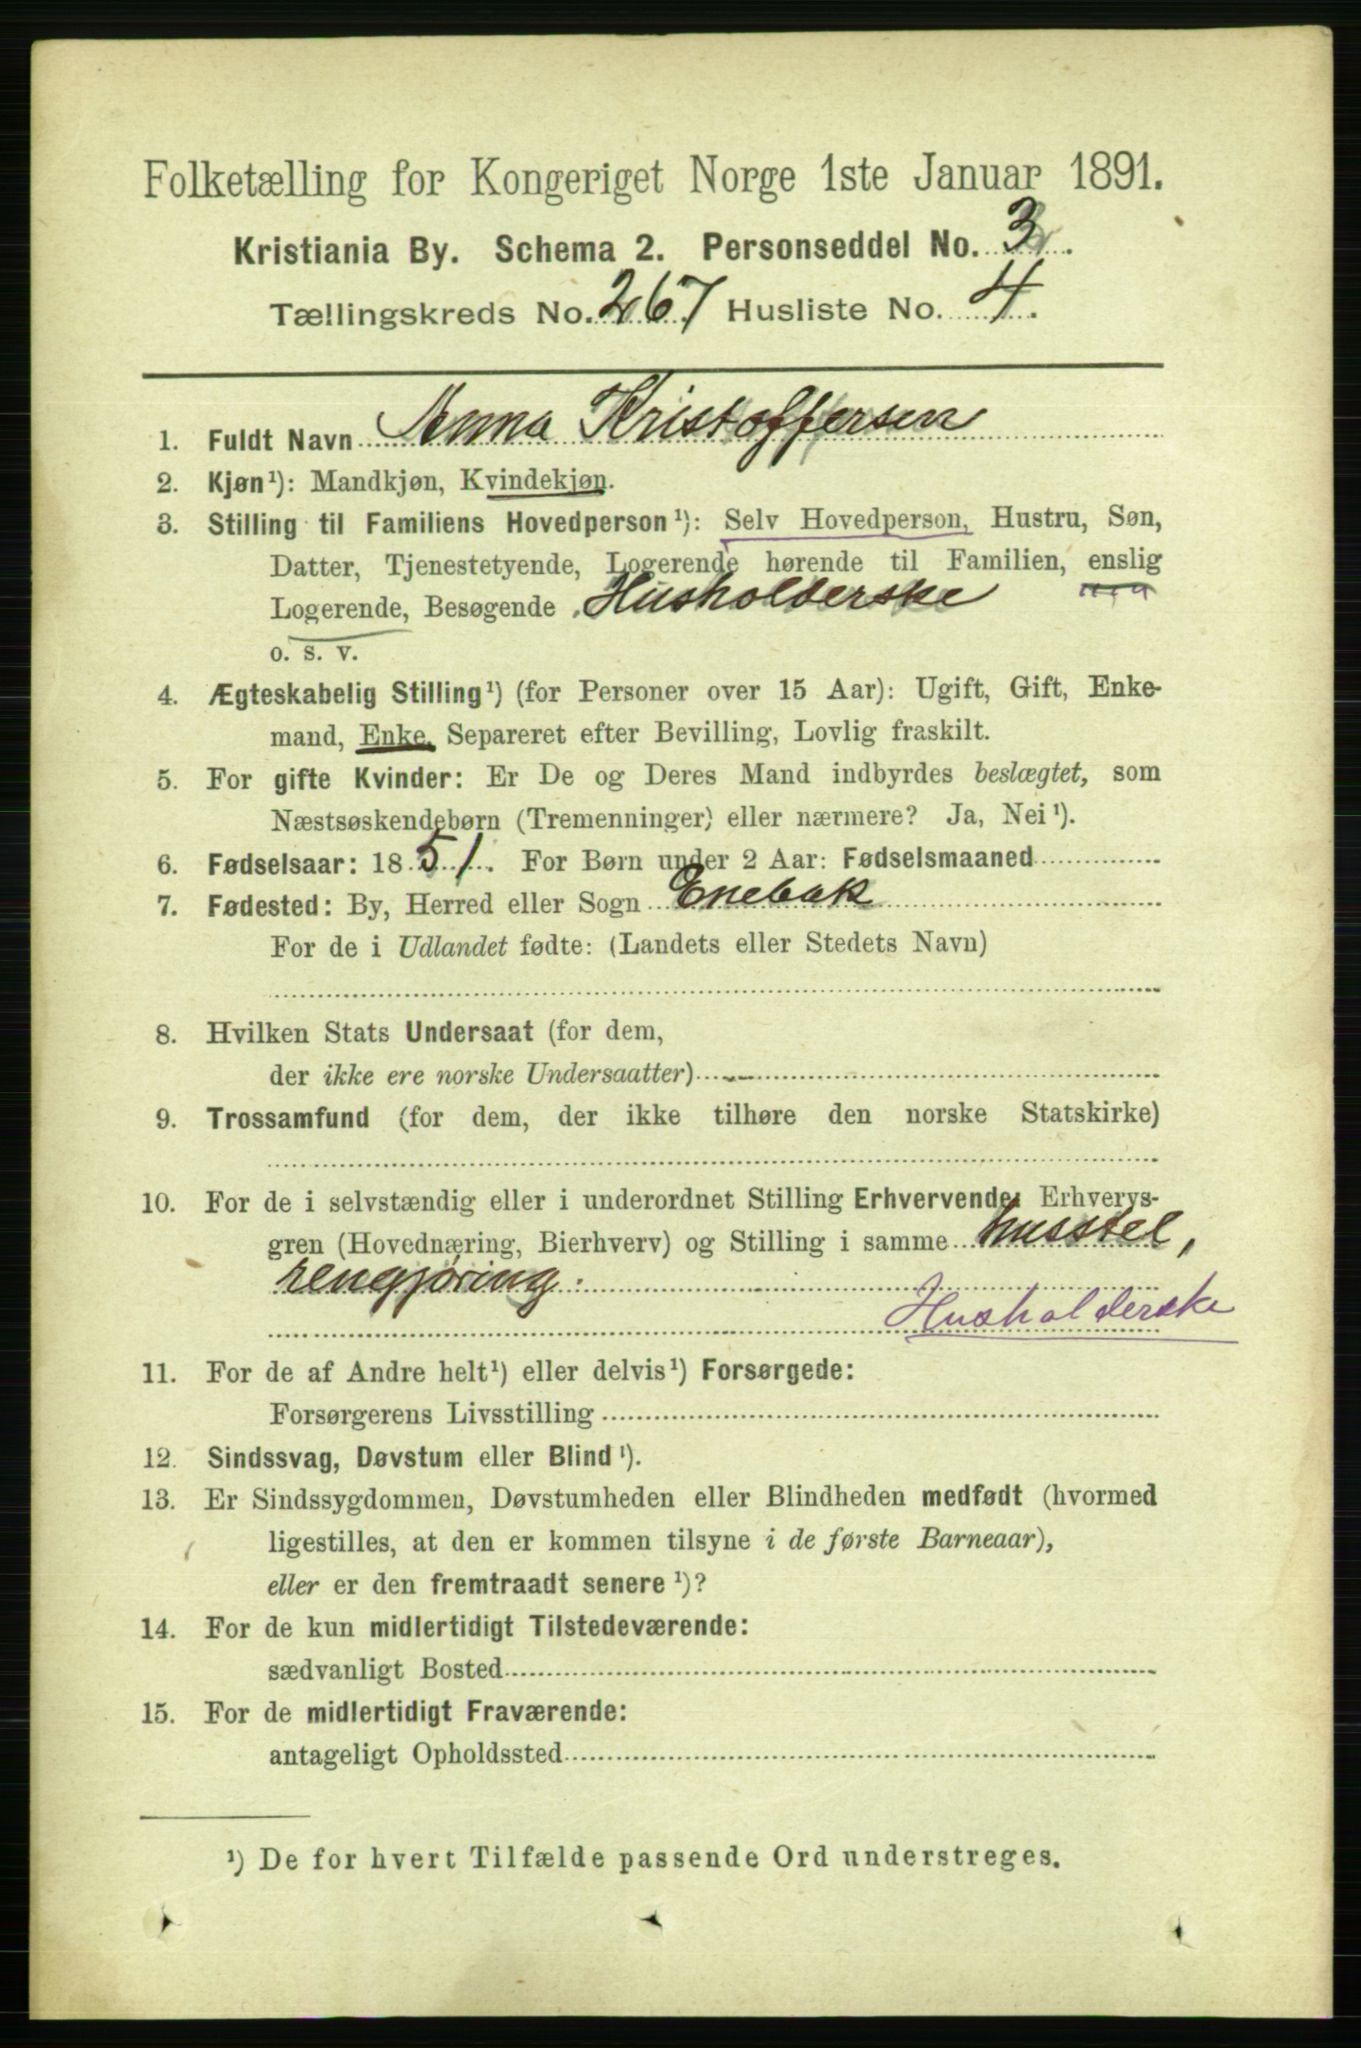 Folketælling for Kongeriget Norge 1ste Januar 1891.
Kristiania By. Schema 2. Personseddel No. 3.
Tællingskreds No. 267 Husliste No. 4.
1. Fuldt Navn Anna Kristoffersen
2. Kjøn¹): Mandkjøn, Kvindekjøn.
3. Stilling til Familiens Hovedperson¹): Selv Hovedperson, Hustru, Søn,
Datter, Tjenestetyende, Logerende hørende til Familien, enslig
Logerende, Besøgende Husholderske
o. s. v.
4. Ægteskabelig Stilling¹) (for Personer over 15 Aar): Ugift, Gift, Enke-
mand, Enke, Separeret efter Bevilling, Lovlig fraskilt.
5. For gifte Kvinder: Er De og Deres Mand indbyrdes beslægtet, som
Næstsøskendebørn (Tremenninger) eller nærmere? Ja, Nei¹).
6. Fødselsaar: 1851. For Børn under 2 Aar: Fødselsmaaned
7. Fødested: By, Herred eller Sogn Enebak
For de i Udlandet fødte: (Landets eller Stedets Navn)
8. Hvilken Stats Undersaat (for dem,
der ikke ere norske Undersaatter)
9. Trossamfund (for dem, der ikke tilhøre den norske Statskirke)
10. For de i selvstændig eller i underordnet Stilling Erhvervende: Erhvervs-
gren (Hovednæring, Bierhverv) og Stilling i samme husstel,
rengjøring.
Husholderske
11. For de af Andre helt¹) eller delvis¹) Forsørgede:
Forsørgerens Livsstilling
12. Sindssvag, Døvstum eller Blind¹).
13. Er Sindssygdommen, Døvstumheden eller Blindheden medfødt (hvormed
ligestilles, at den er kommen tilsyne i de første Barneaar),
eller er den fremtraadt senere¹)?
14. For de kun midlertidigt Tilstedeværende:
sædvanligt Bosted
15. For de midlertidigt Fraværende:
antageligt Opholdssted
¹) De for hvert Tilfælde passende Ord understreges.